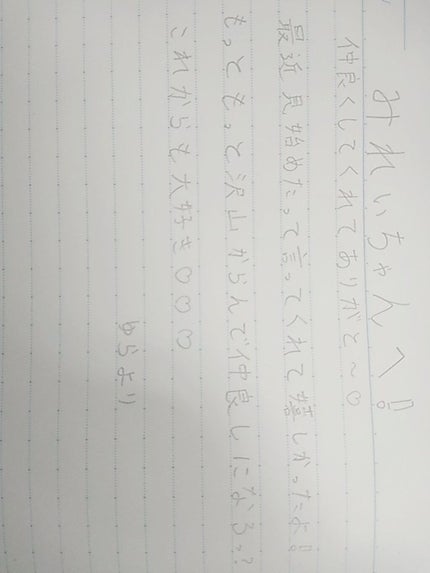 みれいちゃんへ!!
仲良くしてくれてありがと〜♡
最近見始めたって言ってくれて嬉しかったよ!!
もっともっと沢山からんで仲良しになろっ?
これからも大好き♡♡♡
ゆらより